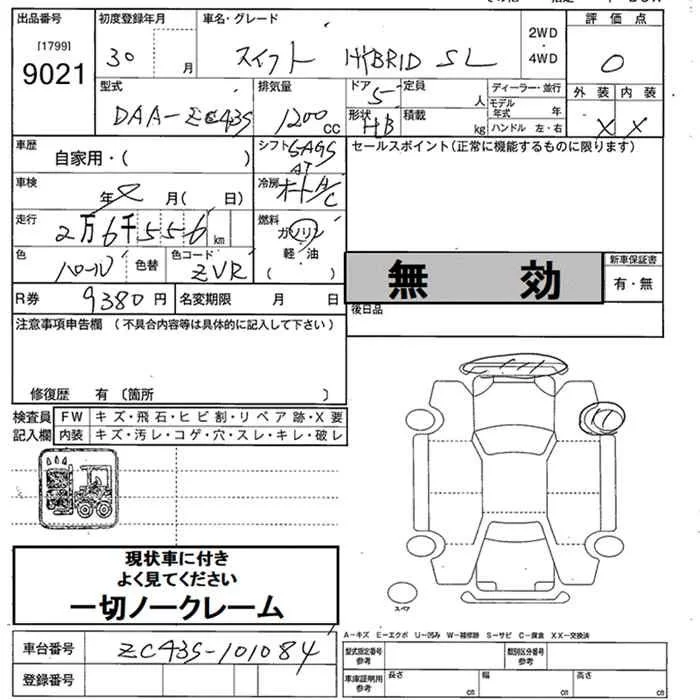 出品番号
[1799]
9021
初度登録年月
30 月
車名・グレード
スイフト HYBRID SL
2WD
・
4WD
評価点
0
外装 内装
X X
型式
DAA-ZC43S
排気量
1200 cc
ドア 5
形状 HB
定員 人
積載 kg
ディーラー・並行
モデル年式 年
ハンドル 左・右
車歴
自家用・( )
シフト 5AGS
AT
セールスポイント(正常に機能するものに限ります)
車検
年 月( 日)
冷房 オートA/C
走行
2万6千556 km
燃料
ガソリン
・
軽・油
( )
色
パール
色替
色コード
ZVR
無 効
新車保証書
有・無
R券 9380 円
名変期限 月 日
後日品
注意事項申告欄 (不具合内容等は具体的に記入して下さい)
修復歴 有 〔箇所 〕
検査員 FW キズ・飛石・ヒビ割・リペア跡・X要
記入欄 内装 キズ・汚レ・コゲ・穴・スレ・キレ・破レ
現状車に付き
よく見てください
一切ノークレーム
スペア
A-キズ E-エクボ U-凹み W-補修跡 S-サビ C-腐食 XX-交換済
車台番号 ZC43S-101084
登録番号
型式指定番号
参考
類別区分番号
参考
車庫証明用
参考
長さ cm
幅 cm
高さ cm